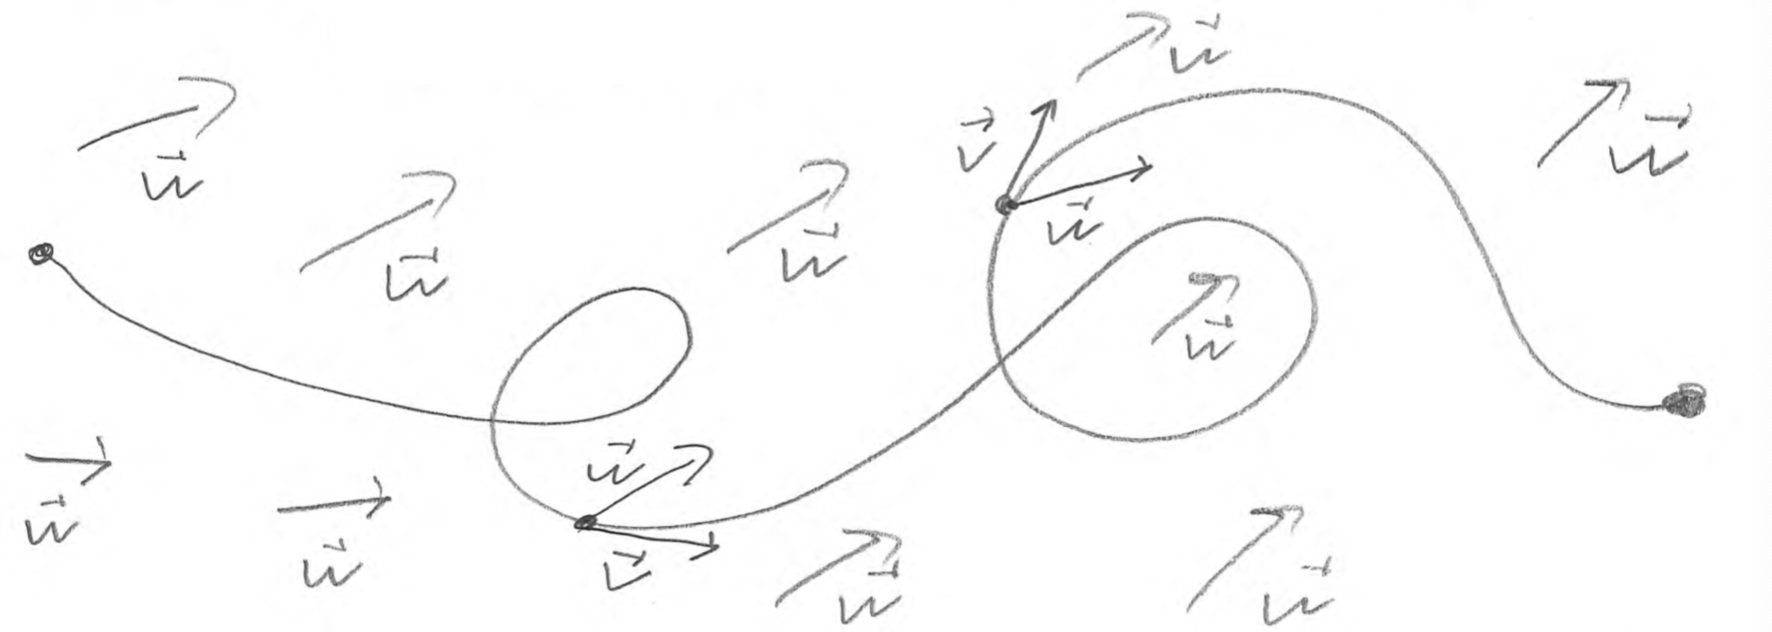 w⃗
v⃗
w⃗
w⃗
w⃗
w⃗
w⃗
w⃗
w⃗
w⃗
w⃗
v⃗
w⃗
w⃗